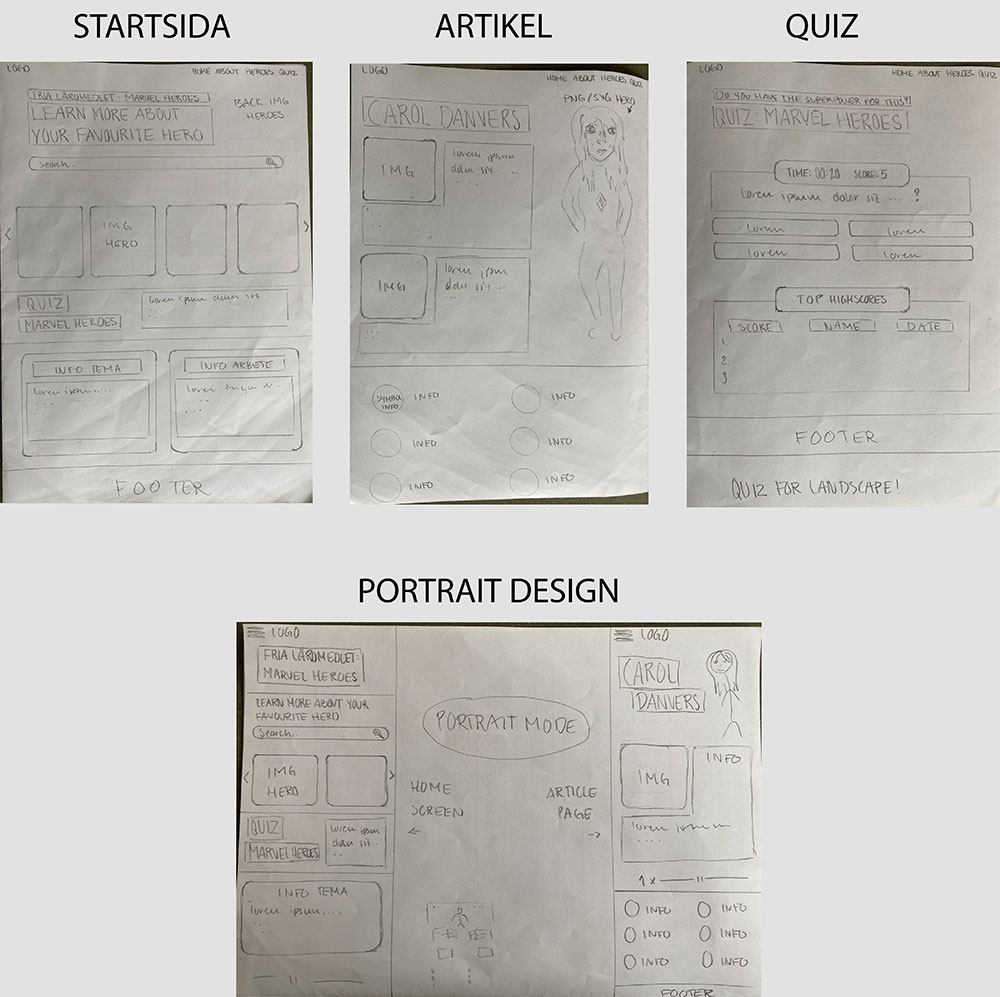 STARTSIDA
LOGO
HOME ABOUT HEROES QUIZ
FRIA LÄROMEDLET: MARVEL HEROES
LEARN MORE ABOUT
YOUR FAVOURITE HERO
BACK. IMG
HEROES
Search...
IMG
HERO
QUIZ
MARVEL HEROES
lorem ipsum dolor sit
INFO TEMA
lorem ipsum...
INFO ARBETE
Lorem
FOOTER
ARTIKEL
LOGO
HOME ABOUT HEROES QUIZ
PNG/SVG HERO
CAROL DANVERS
IMG
lorem ipsum
dolor sit
....
IMG
lorem ipsum
dolor sit...
...
SYMBOL
INFO
INFO
INFO
INFO
INFO
INFO
INFO
QUIZ
LOGO
HOME ABOUT HEROES QUIZ
DO YOU HAVE THE SUPERPOWER FOR THIS?
QUIZ: MARVEL HEROES
TIME: 00:20 SCORE: 5
lorem ipsum dolor sit ... ?
lorem
lorem
lorem
lorem
TOP HIGHSCORES
SCORE NAME DATE
1
2
3
FOOTER
QUIZ FOR LANDSCAPE!
PORTRAIT DESIGN
LOGO
FRIA LÄROMEDLET:
MARVEL HEROES
LEARN MORE ABOUT YOUR
FAVOURITE HERO
Search..
IMG
HERO
QUIZ
MARVEL HEROES
lorem ipsum
dolor sit..
INFO TEMA
lorem ipsum....
— 11 —
PORTRAIT MODE
HOME
SCREEN
←
ARTICLE
PAGE
→
LOGO
CAROL
DANVERS
IMG
INFO
lorem ipsum
....
1 x — 11 —
INFO
INFO
INFO
INFO
INFO
INFO
FOOTER